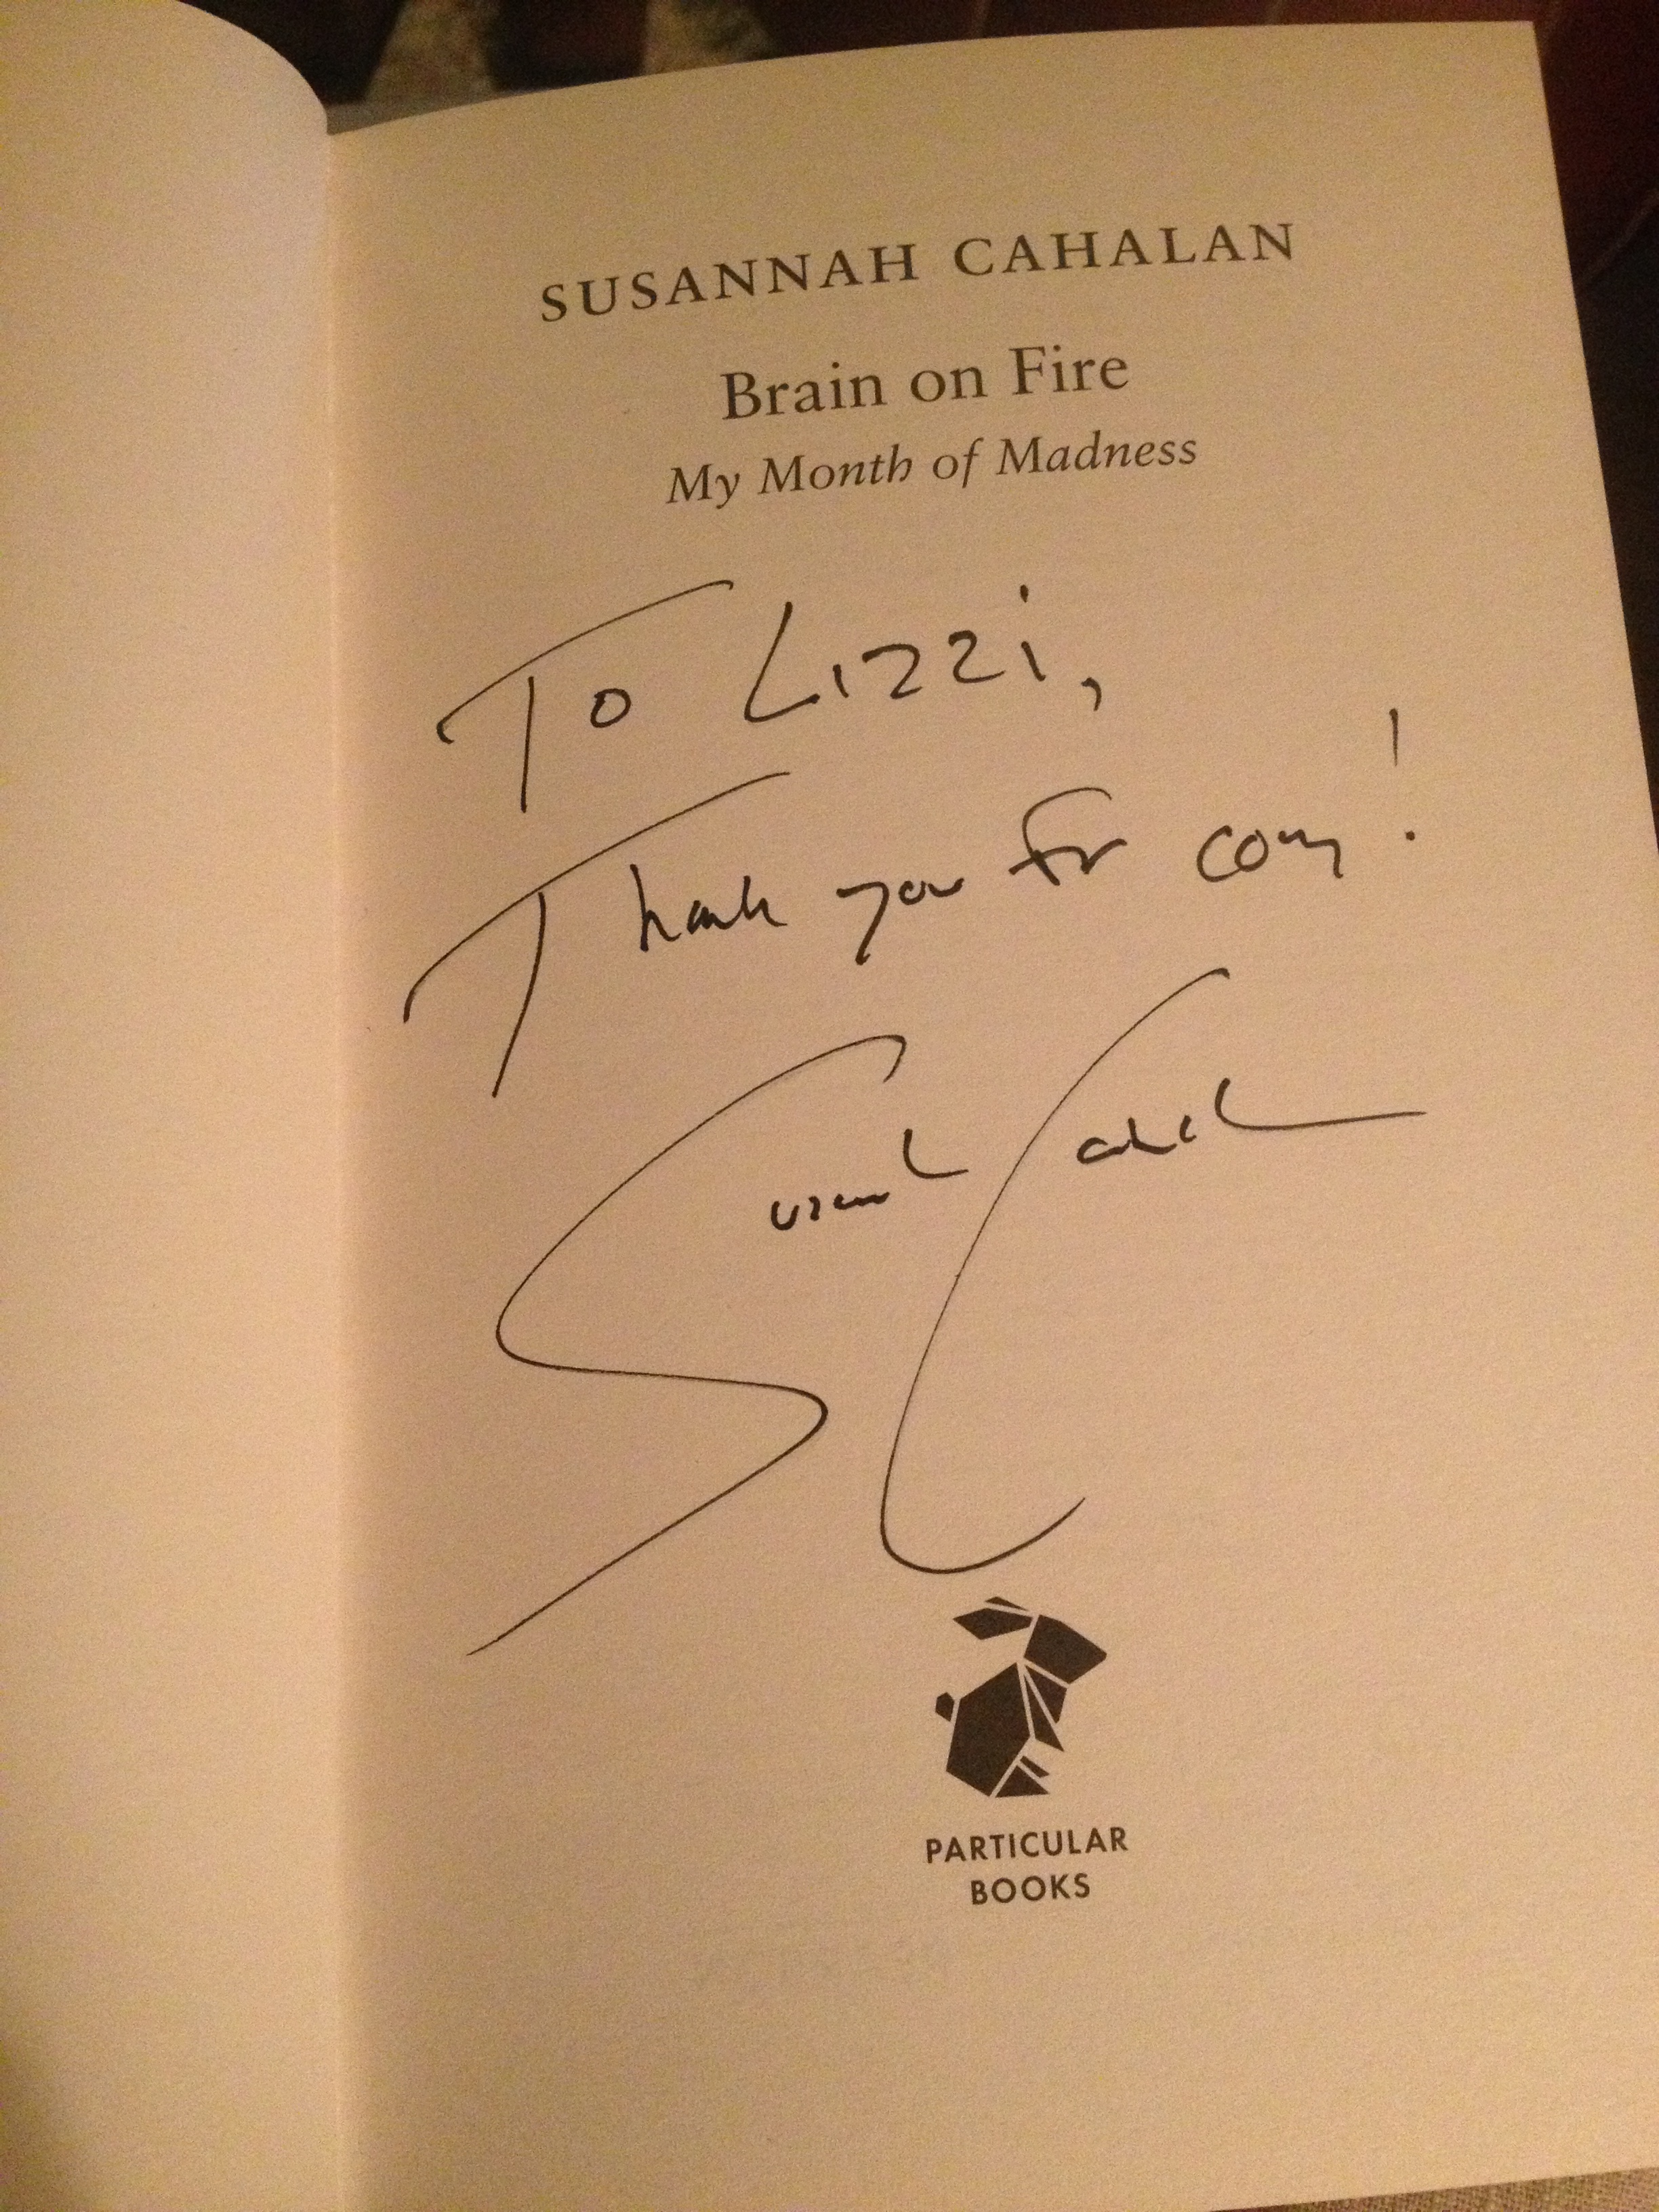 SUSANNAH CAHALAN
Brain on Fire
My Month of Madness
To Lizzi,
Thank you for coming!
Susannah Cahalan
PARTICULAR
BOOKS